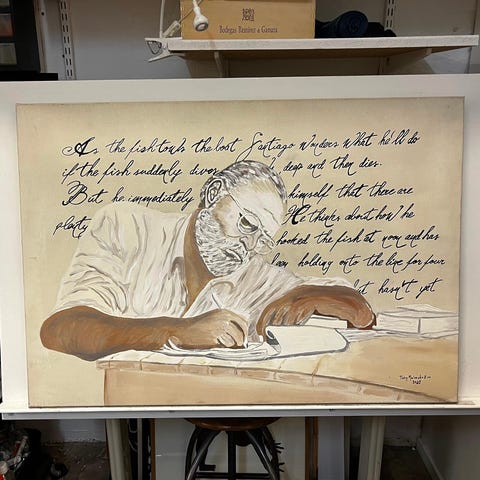 Bodegas Ramírez de Ganuza
As the fish tows the boat Santiago wonders what he'll do
if the fish suddenly dives deep and then dies.
But he immediately himself that there are
plenty He thinks about how he
hooked the fish at noon and has
been holding onto the line for four
but hasn't yet